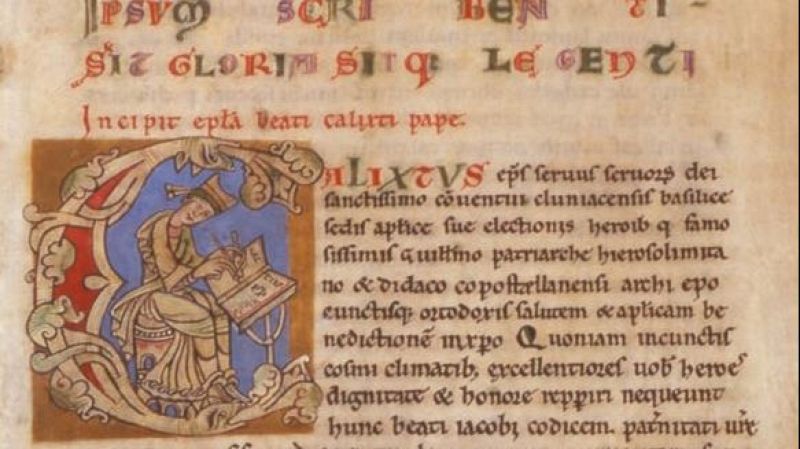 IPSVM SCRIBENTI
SIT GLORIA SITQ: LEGENTI
Incipit epła beati calixti pape.
CALIXTUS epʃ seruus seruorʒ dei
sanctissimo cōuentui cluniacensis basilice
sedis aplice sue electionis heroib q famo
sissimis Guillmo patriarche hierosolimita
no & didaco copostellanensi archi epo
cunctisq; ortodoxis salutem & aplicam be
nedictionē inxpo Quoniam incunctis
cosmi climatib, excellentiores uob heroes
dignitate & honore repperiri nequeunt
hunc beati iacobi codicem. pat'nitati